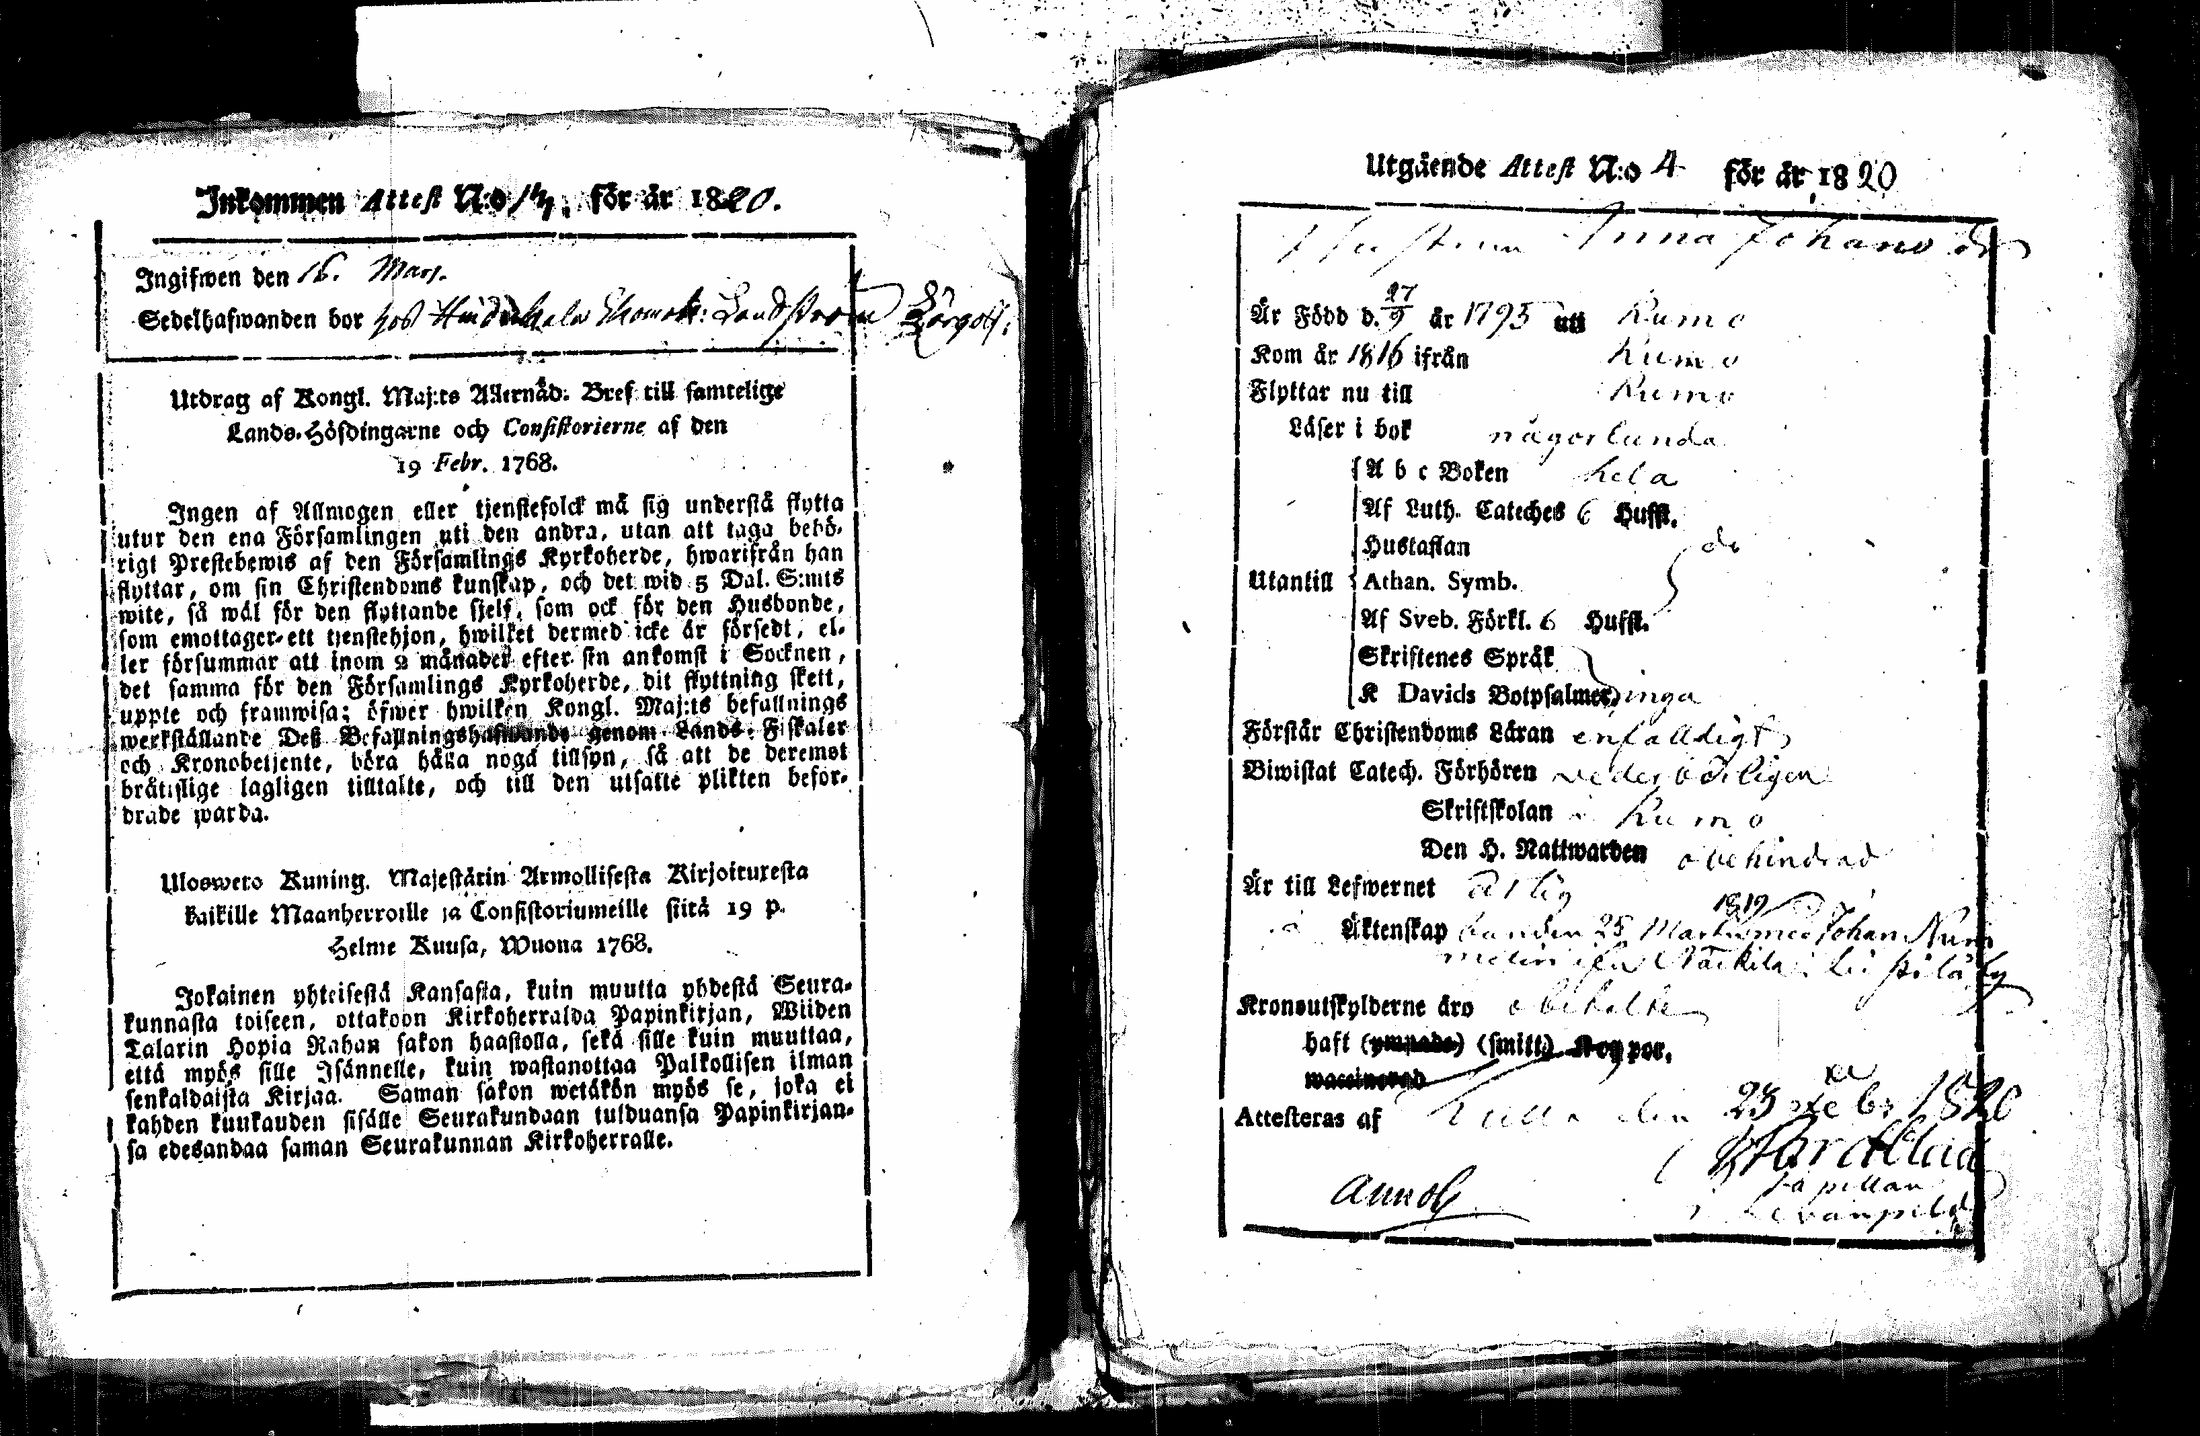 Inkommen Attest N:o 17. för år 1820.
Ingifwen den 16. Mars.
Sedelhafwanden bor hos
Utdrag af Kongl. Maj:ts Allernåd: Bref till samtelige
Lands-Höfdingarne och Consistorierne af den
19 Febr. 1768.
Ingen af Allmogen eller tjenstefolck må sig understå flytta
utur den ena Församlingen uti den andra, utan att taga behö-
rigt Prestebewis af den Församlings Kyrkoherde, hwarifrån han
flyttar, om sin Christendoms kunskap, och det wid 5 Dal. S:mts
wite, så wäl för den flyttande sjelf, som ock för den Husbonde,
som emottager ett tjenstehjon, hwilket dermed icke är försedt, el-
ler försummar att inom 2 månader efter sin ankomst i Socknen,
det samma för den Församlings Kyrkoherde, dit flyttning skett,
uppte och framwisa; öfwer hwilken Kongl. Maj:ts befallnings
werkställande Deß Befallningshafwande genom Lands-Fiskaler
och Kronobetjente, böra hålla noga tillsyn, så att de deremot
bråtslige lagligen tilltalte, och till den utsatte plikten befor-
drade warda.
Uloswero Kuning. Majestärin Armollisesta Kirjoituxesta
kaikille Maanherroille ja Consistoriumeille siitä 19 p.
Helme Kuusa, Wuona 1768.
Jokainen yhteisestä Kansasta, kuin muutta yhdestä Seura-
kunnasta toiseen, ottakoon Kirkoherralda Papinkirjan, Wiiden
Talarin Hopia Rahan sakon haastolla, sekä sille kuin muuttaa,
että myös sille Isännelle, kuin wastanottaa Palkollisen ilman
senkaldaista Kirjaa. Saman sakon wetäkön myös se, joka ei
kahden kuukauden sisälle Seurakundaan tulduansa Papinkirjan-
sa edesandaa saman Seurakunnan Kirkoherralle.
Utgående Attest N:o 4 för år 1820
Hustrun Anna Johansdr
Är Född d. 27/9 år 1795 uti Kumo
Kom år 1816 ifrån Kumo
Flyttar nu till Kumo
Läser i bok någorlunda
A b c Boken hela
Af Luth. Cateches 6 Hufst.
Hustaflan do
Utantill Athan. Symb.
Af Sveb. Förkl. 6 Hufst.
Skriftenes Språk
K Davids Botpsalmer inga
Förstår Christendoms Läran enfalldigt
Biwistat Catech. Förhören vederbörligen
Skriftskolan i Kumo
Den H. Nattwarden obehindrad
Är till Lefwernet ärlig
1819
Äktenskap bunden 25 Martii med Johan Num
melin ifrån
Kronoutskylderne äro obetalte
haft (ympade) (smitt) Koppor.
waccinerad
Attesteras af Kulla den 23 Febr 1820